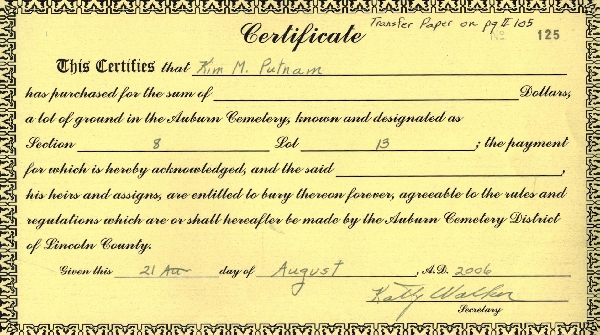 Transfer Paper on pg II 105
Certificate No 125
This Certifies that Kim M. Putnam
has purchased for the sum of Dollars,
a lot of ground in the Auburn Cemetery, known and designated as
Section 8 Lot 13 ; the payment
for which is hereby acknowledged, and the said ,
his heirs and assigns, are entitled to bury thereon forever, agreeable to the rules and
regulations which are or shall hereafter be made by the Auburn Cemetery District
of Lincoln County.
Given this 21 day of August , A.D. 2006
Kathy Walker
Secretary